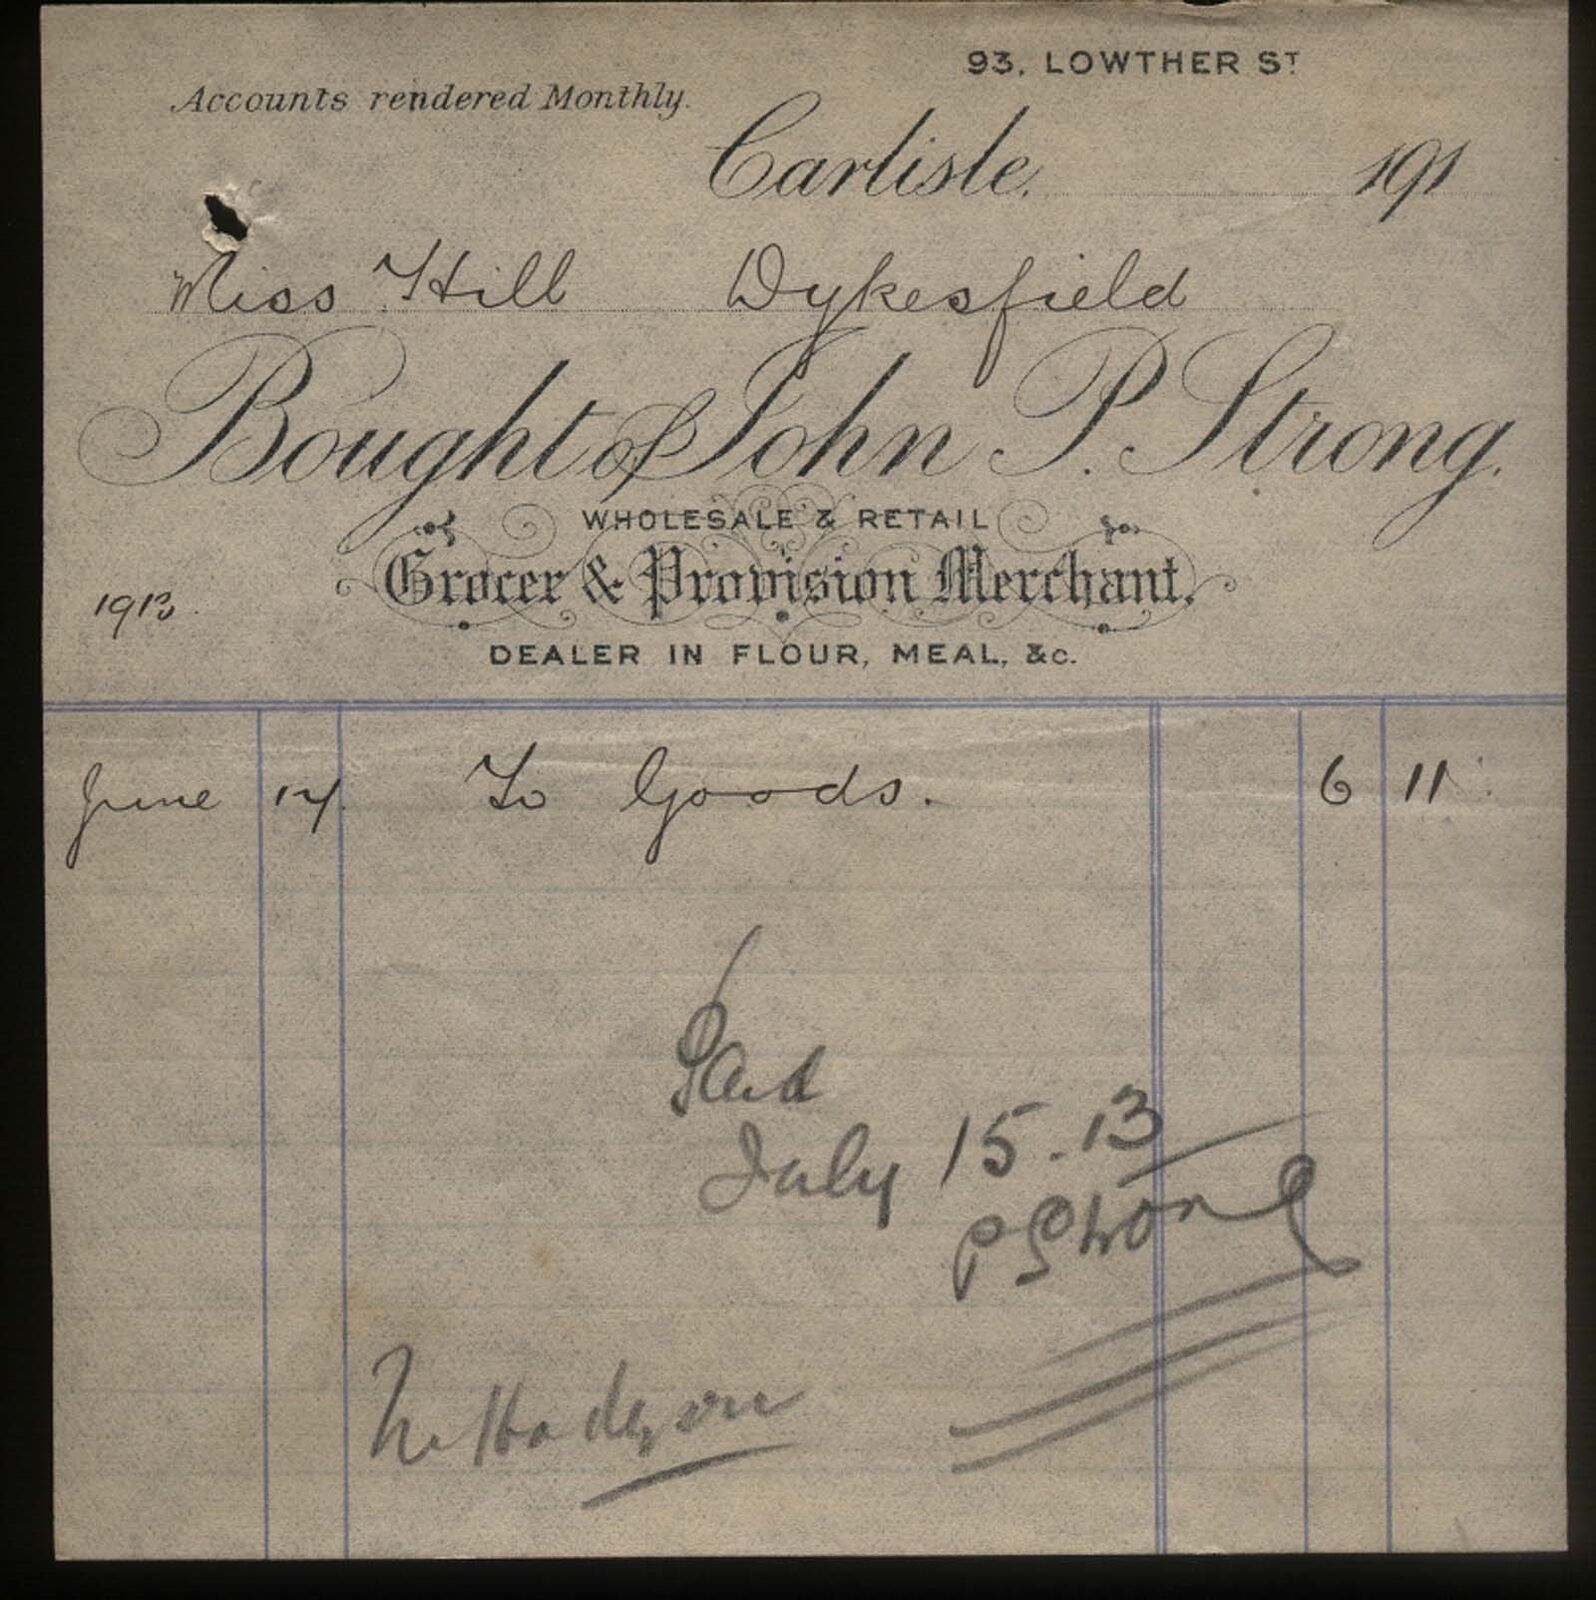 93, LOWTHER ST
Accounts rendered Monthly.
Carlisle. 191
Miss Hill Dykesfield
Bought of John P. Strong.
WHOLESALE & RETAIL
Grocer & Provision Merchant,
1913.
DEALER IN FLOUR, MEAL, &c.
June 14 To Goods. 6 11
Paid
July 15.13
P Strong
Hodgson